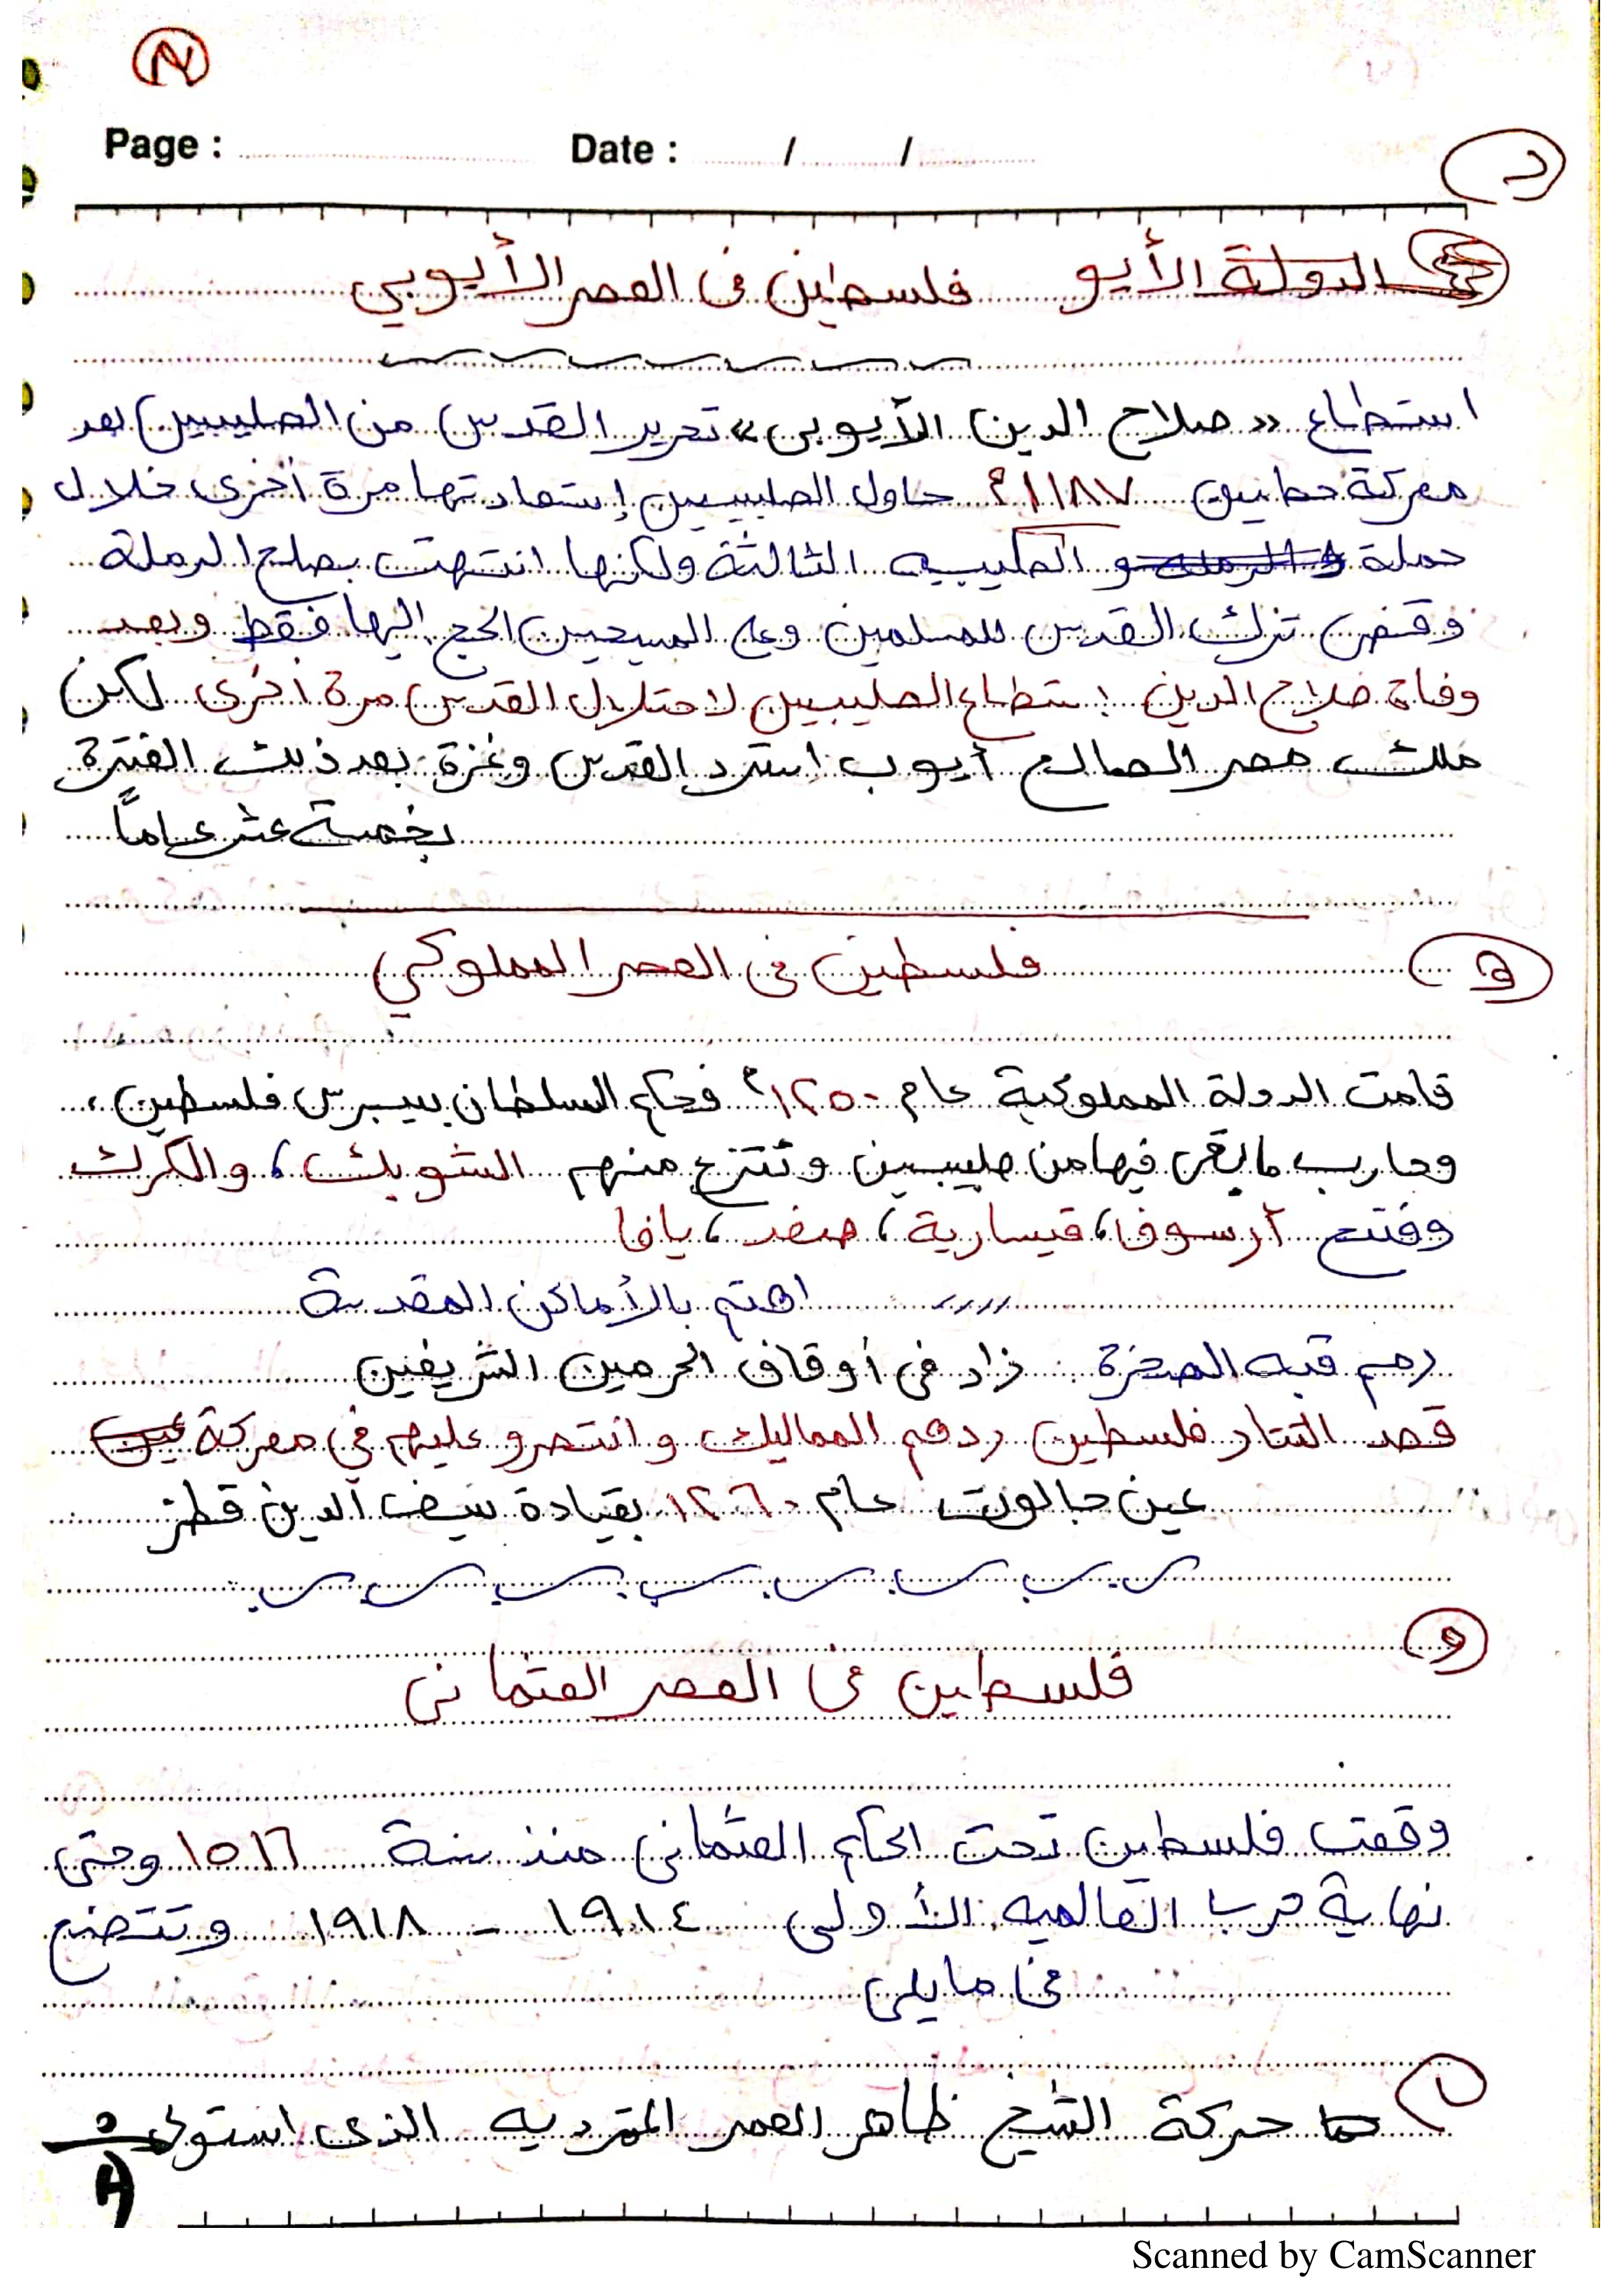 Page : Date : / /
د
الدولة الأيو فلسطين فى العصر الأيوبي
استطاع «صلاح الدين الأيوبى» تحرير القدس من الصليبين بعد
معركة حطين ١١٨٧م حاول الصليبين إستعادتها مرة أخرى خلال
حملة الصليبيه الثالثة ولكنها انتهت بصلح الرملة
وقضى ترك القدس للمسلمين وعلى المسيحين الحج إليها فقط وبعد
وفاة صلاح الدين إستطاع الصليبين لاحتلال القدس مرة أخرى لكن
ملك مصر الصالح أيوب استرد القدس وغزة بعد ذلك الفترة
بخمسة عشر عاماً
ه
فلسطين فى العصر المملوكي
قامت الدولة المملوكية عام ١٢٥٠م فحكم السلطان بيبرس فلسطين،
وحارب ما بقى فيها من صليبين وتنتزع منهم الشوبك، والكرك
وفتح أرسوف، قيسارية، صفد، يافا
اهتم بالأماكن المقدسة
رمم قبه الصخرة زاد فى أوقاف الحرمين الشريفين
قصد التتار فلسطين ردهم المماليك وانتصرو عليهم في معركة عين
عين جالوت عام ١٢٦٠ بقيادة سيف الدين قطز
و
فلسطين فى العصر العثمانى
وقعت فلسطين تحت الحكم العثمانى منذ سنة ١٥١٦ وحتى
نهاية حرب العالميه الأولى ١٩١٤ - ١٩١٨ وتتضح
فى مايلى
١ حركة الشيخ ظاهر العمر المترديه الذى استولى
Scanned by CamScanner